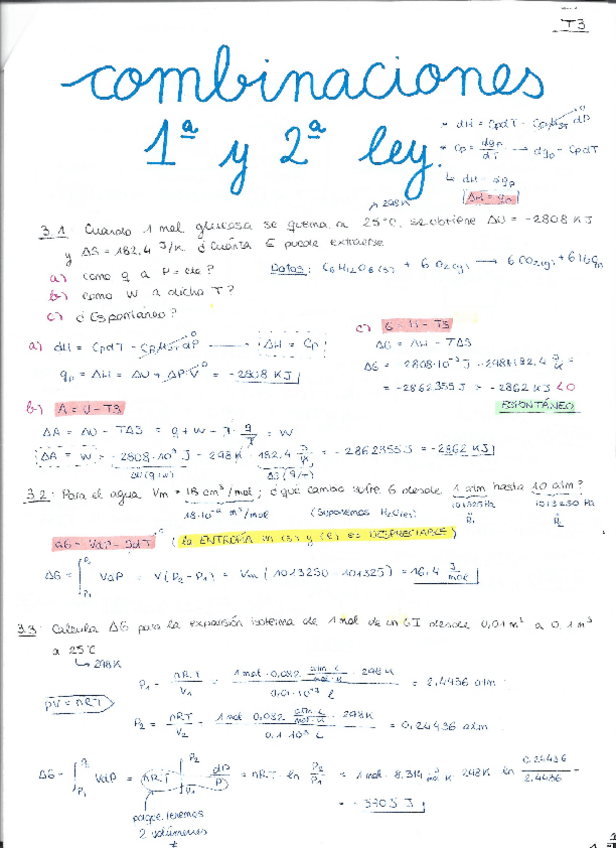 T3
combinaciones
1ª y 2ª ley.
* dH = CpdT - CpμJT dP 0
* Cp = dqp/dT → dqp = CpdT
↳ dH = dqp
ΔH = qp
↗ 298K
3.1. Cuando 1 mol glucosa se quema a 25°C, se obtiene ΔU = -2808 KJ
y ΔS = 182,4 J/K. ¿Cuánta E puede extraerse
a) como q a P = cte?
Datos: C6H12O6(s) + 6O2(g) → 6CO2(g) + 6H2O
b) como W a dicha T?
c) ¿Espontáneo?
a) dH = CpdT - CpμJTdP 0 → ΔH = qp
qp = ΔH = ΔU + ΔP·V 0 = -2808 KJ
c) G = H - TS
ΔG = ΔH - TΔS
ΔG = -2808·10³ J - 298K·182,4 J/K =
= -2862355 J = -2862 KJ < 0
ESPONTÁNEO
b) A = U - TS
ΔA = ΔU - TΔS = q + W - T·q/T = W
ΔA = W = -2808·10³ J - 298K · 182,4 J/K = -2862355 J = -2862 KJ
ΔU (q+W)
ΔS (q/T)
3.2. Para el agua Vm = 18 cm³/mol; ¿qué cambio sufre G desde 1 atm hasta 10 atm?
18·10⁻⁶ m³/mol
(Suponemos
101325 Pa
P1
1013250 Pa
P2
dG = VdP - SdT 0
(la ENTROPÍA en (s) y (l) es DESPRECIABLE)
ΔG = ∫P1 P2 VdP = V(P2 - P1) = Vm (1013250 - 101325) = 16,4 J/mol
3.3. Calcula ΔG para la expansión isoterma de 1 mol de un GI desde 0,01 m³ a 0,1 m³
a 25°C
↳ 298K
PV = nRT
P1 = nRT/V1 = 1 mol · 0,082 atm·L/mol·K · 298K / 0,01·10⁻³ L = 2,4436 atm
P2 = nRT/V2 = 1 mol 0,082 atm·L/mol·K · 298K / 0,1·10³ L = 0,24436 atm
ΔG = ∫P1 P2 VdP = nRT ∫V1 P2 dP/P = nRT ln P2/P1 = 1 mol · 8,314 J/mol K · 298K ln 0,24436/2,4436 =
= -5705 J
porque tenemos
2 volúmenes